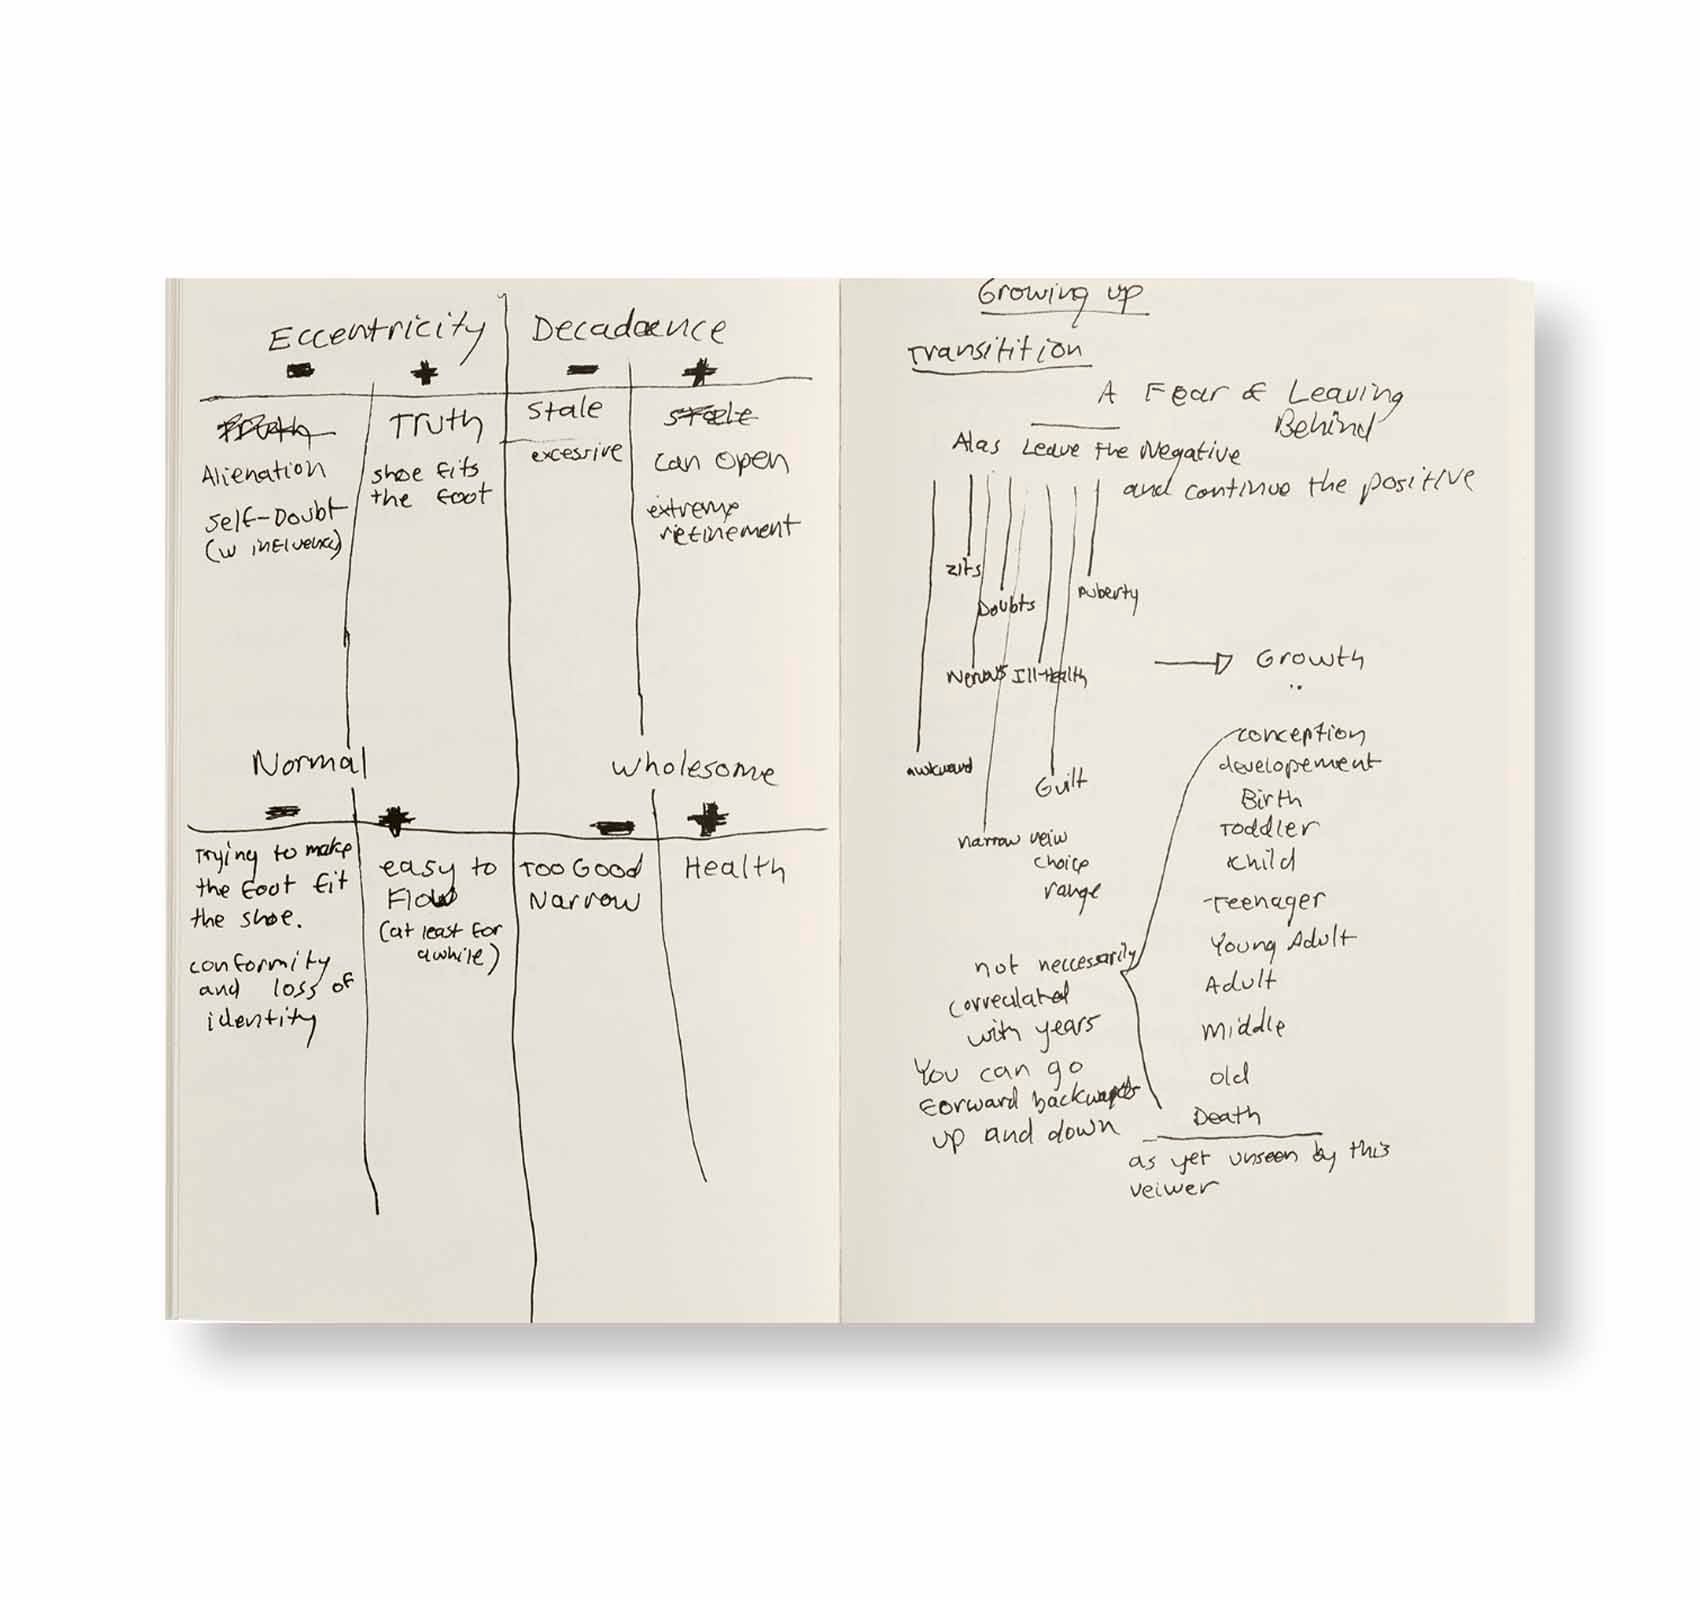 Eccentricity
-
+
Truth
Alienation
Self-Doubt
(w influence)
Truth
shoe fits
the foot
Decadaence
-
+
Stale
excessive
Stale
can open
extreme
refinement
Normal
-
+
Trying to make
the foot fit
the shoe.
conformity
and loss of
identity
easy to
Flow
(at least for
awhile)
wholesome
-
+
Too Good
Narrow
Health
Growing up
Transitition
A Fear of Leaving
Behind
Alas Leave the Negative
and continue the positive
zits
Doubts
Puberty
Nervous Ill-Health
awkward
Guilt
narrow veiw
choice
range
Growth
conception
developement
Birth
Toddler
child
Teenager
Young Adult
Adult
middle
old
Death
as yet unseen by this
veiwer
not neccessarily
correalated
with years
You can go
forward backwards
up and down